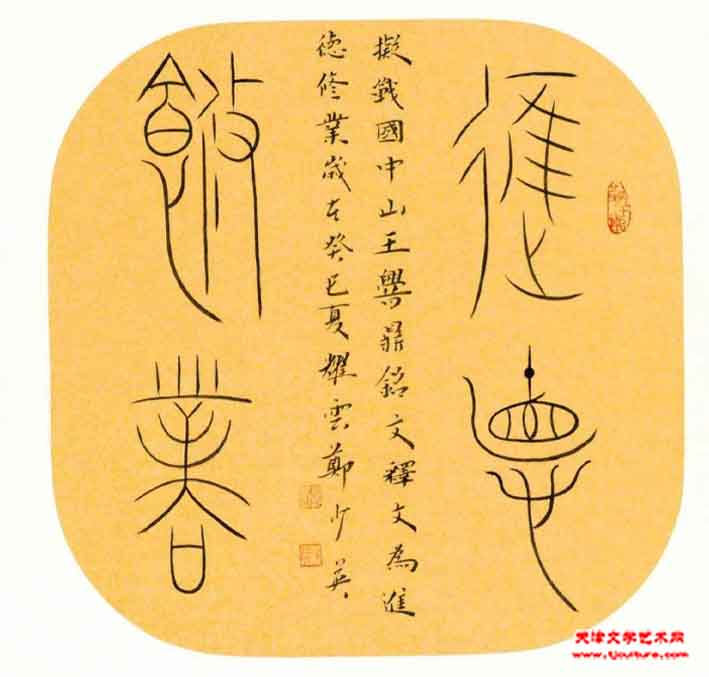 進德
擬戰國中山王嚳鼎銘文釋文為進
德修業歲在癸巳夏耀雲鄭少英
修業
天津文学艺术网
www.tjculture.com